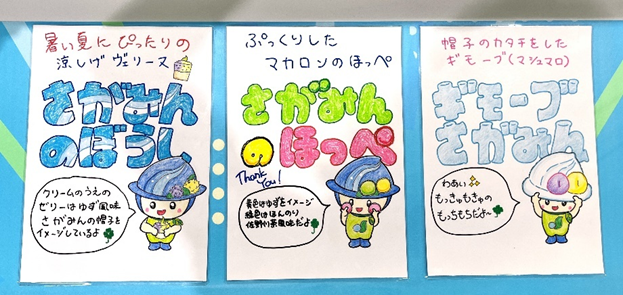 暑い夏にぴったりの
涼しげヴェリーヌ
さがみん
のぼうし
クリームのうえの
ゼリーはゆず風味
さがみんの帽子を
イメージしているよ
ぷっくりした
マカロンのほっぺ
さがみん
のほっぺ
Thank
You!
黄色はゆずをイメージ
緑色はほんのり
佐野川茶風味だよ
帽子のカタチをした
ギモーブ(マシュマロ)
ギモーブ
さがみん
わあい
もっきゅもきゅの
もっちもちだよ〜